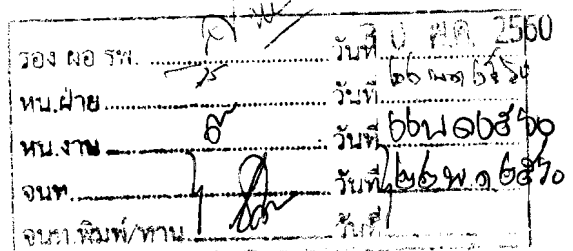 รอง ผอ รพ. วันที่ 30 พ.ค. 2560
หน.ฝ่าย วันที่
หน.งาน วันที่ ๒๒ พ.ค. ๒๕๖๐
จนท. วันที่ ๒๒ พ.ค. ๒๕๖๐
จนท.พิมพ์/ทาน วันที่